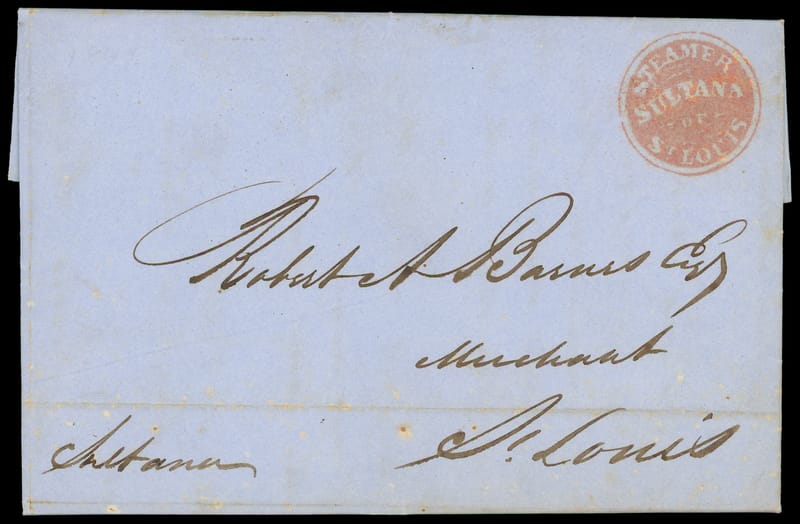 STEAMER
SULTANA
OF
St LOUIS
Robert A Barnes Esq
Merchant
St Louis
Sultana